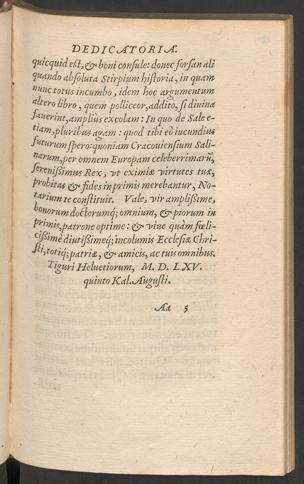 DEDICATORIA.
quicquid est, & boni consule: donec forsan ali
quando absoluta Stirpium historia, in quam
nunc totus incumbo, idem hoc argumentum
altero libro, quem polliceor, addito, si divina
fauerint, amplius excolam: In quo de Sale e-
tiam, pluribus agam: quod tibi eò iucundius
futurum spero: quoniam Cracouiensium Sali-
narum, per omnem Europam celeberrimarũ,
serenissimus Rex, vt eximiæ virtutes tuæ,
probitas & fides in primis merebantur, No-
tarium te constituit. Vale, vir amplissime,
bonorum doctorumq; omnium, & piorum in
primis, patrone optime: & viue quàm fœli-
cissimè diutissimeq; incolumis Ecclesiæ Chri-
sti, totiq; patriæ, & amicis, ac tuis omnibus.
Tiguri Heluetiorum, M. D. LXV.
quinto Kal. Augusti.
Aa 5